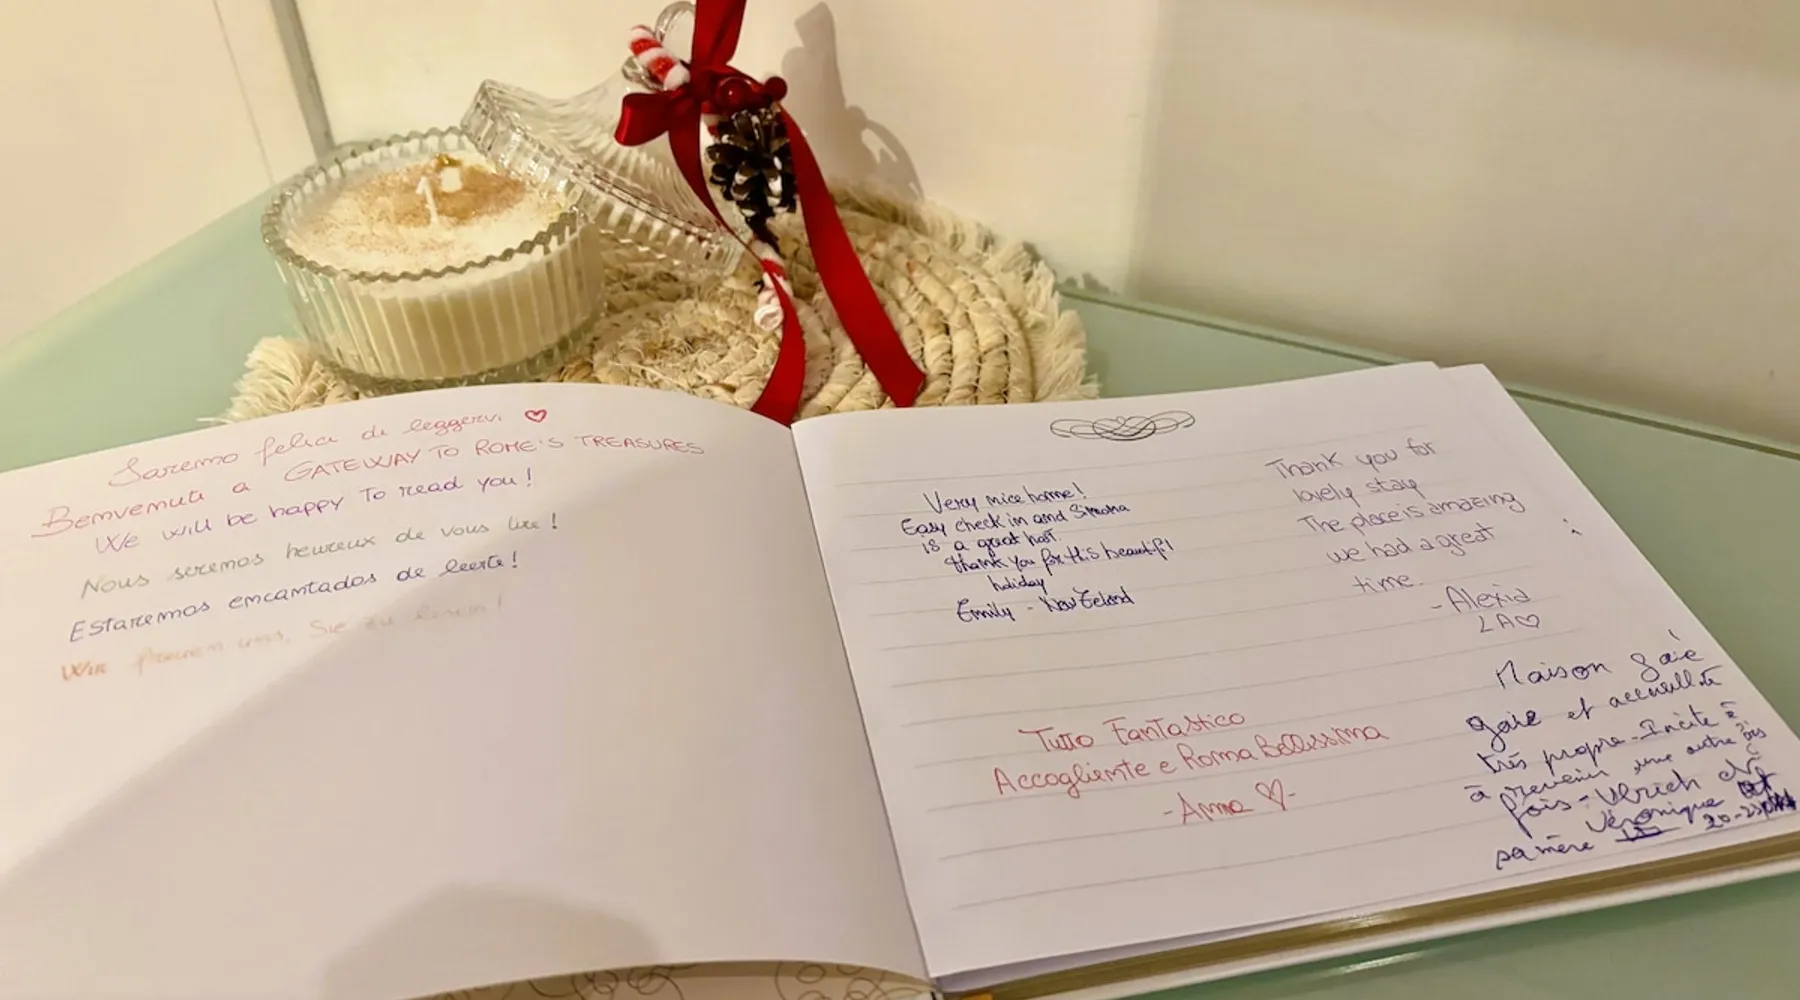 Saremo felici di leggervi
Benvenuti a GATEWAY TO ROME'S TREASURES
We will be happy to read you!
Nous seremos heureux de vous lire!
Estaremos encantados de leerte!
Wir freuen uns, Sie zu lesen!
Very nice home!
Easy check in and Simona
is a great host.
thank you for this beautifl
holiday
Emily - New Zeland
Thank you for
lovely stay
The place is amazing
we had a great
time.
- Alexia
LA
Tutto Fantastico
Accogliente e Roma Bellissima
- Anna -
Maison gaie
gaie et accueillte
très propre - Incite
à revenir une autre
fois - Ulrich
Véronique
sa mère 20-23